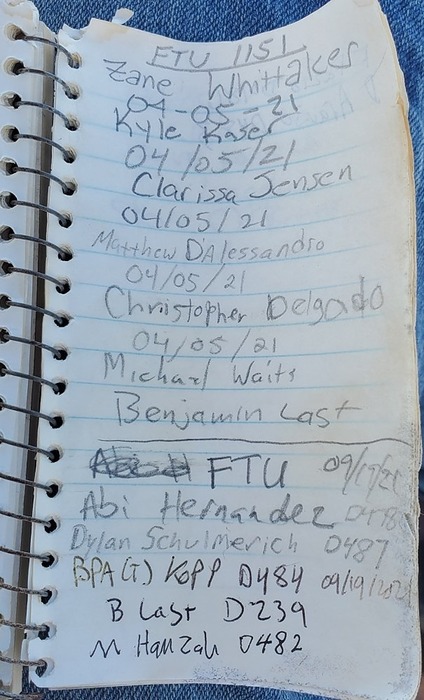 FTU 1151
Zane Whittaker
04-05-21
Kyle Kaser
04/05/21
Clarissa Jensen
04/05/21
Matthew D'Alessandro
04/05/21
Christopher Delgado
04/05/21
Michael Waits
Benjamin Last
FTU 09/19/21
Abi Hernandez
Dylan Schulmerich 0487
BPA(T) Kopp D484 09/19/2021
B Last D239
M Hamzah 0482